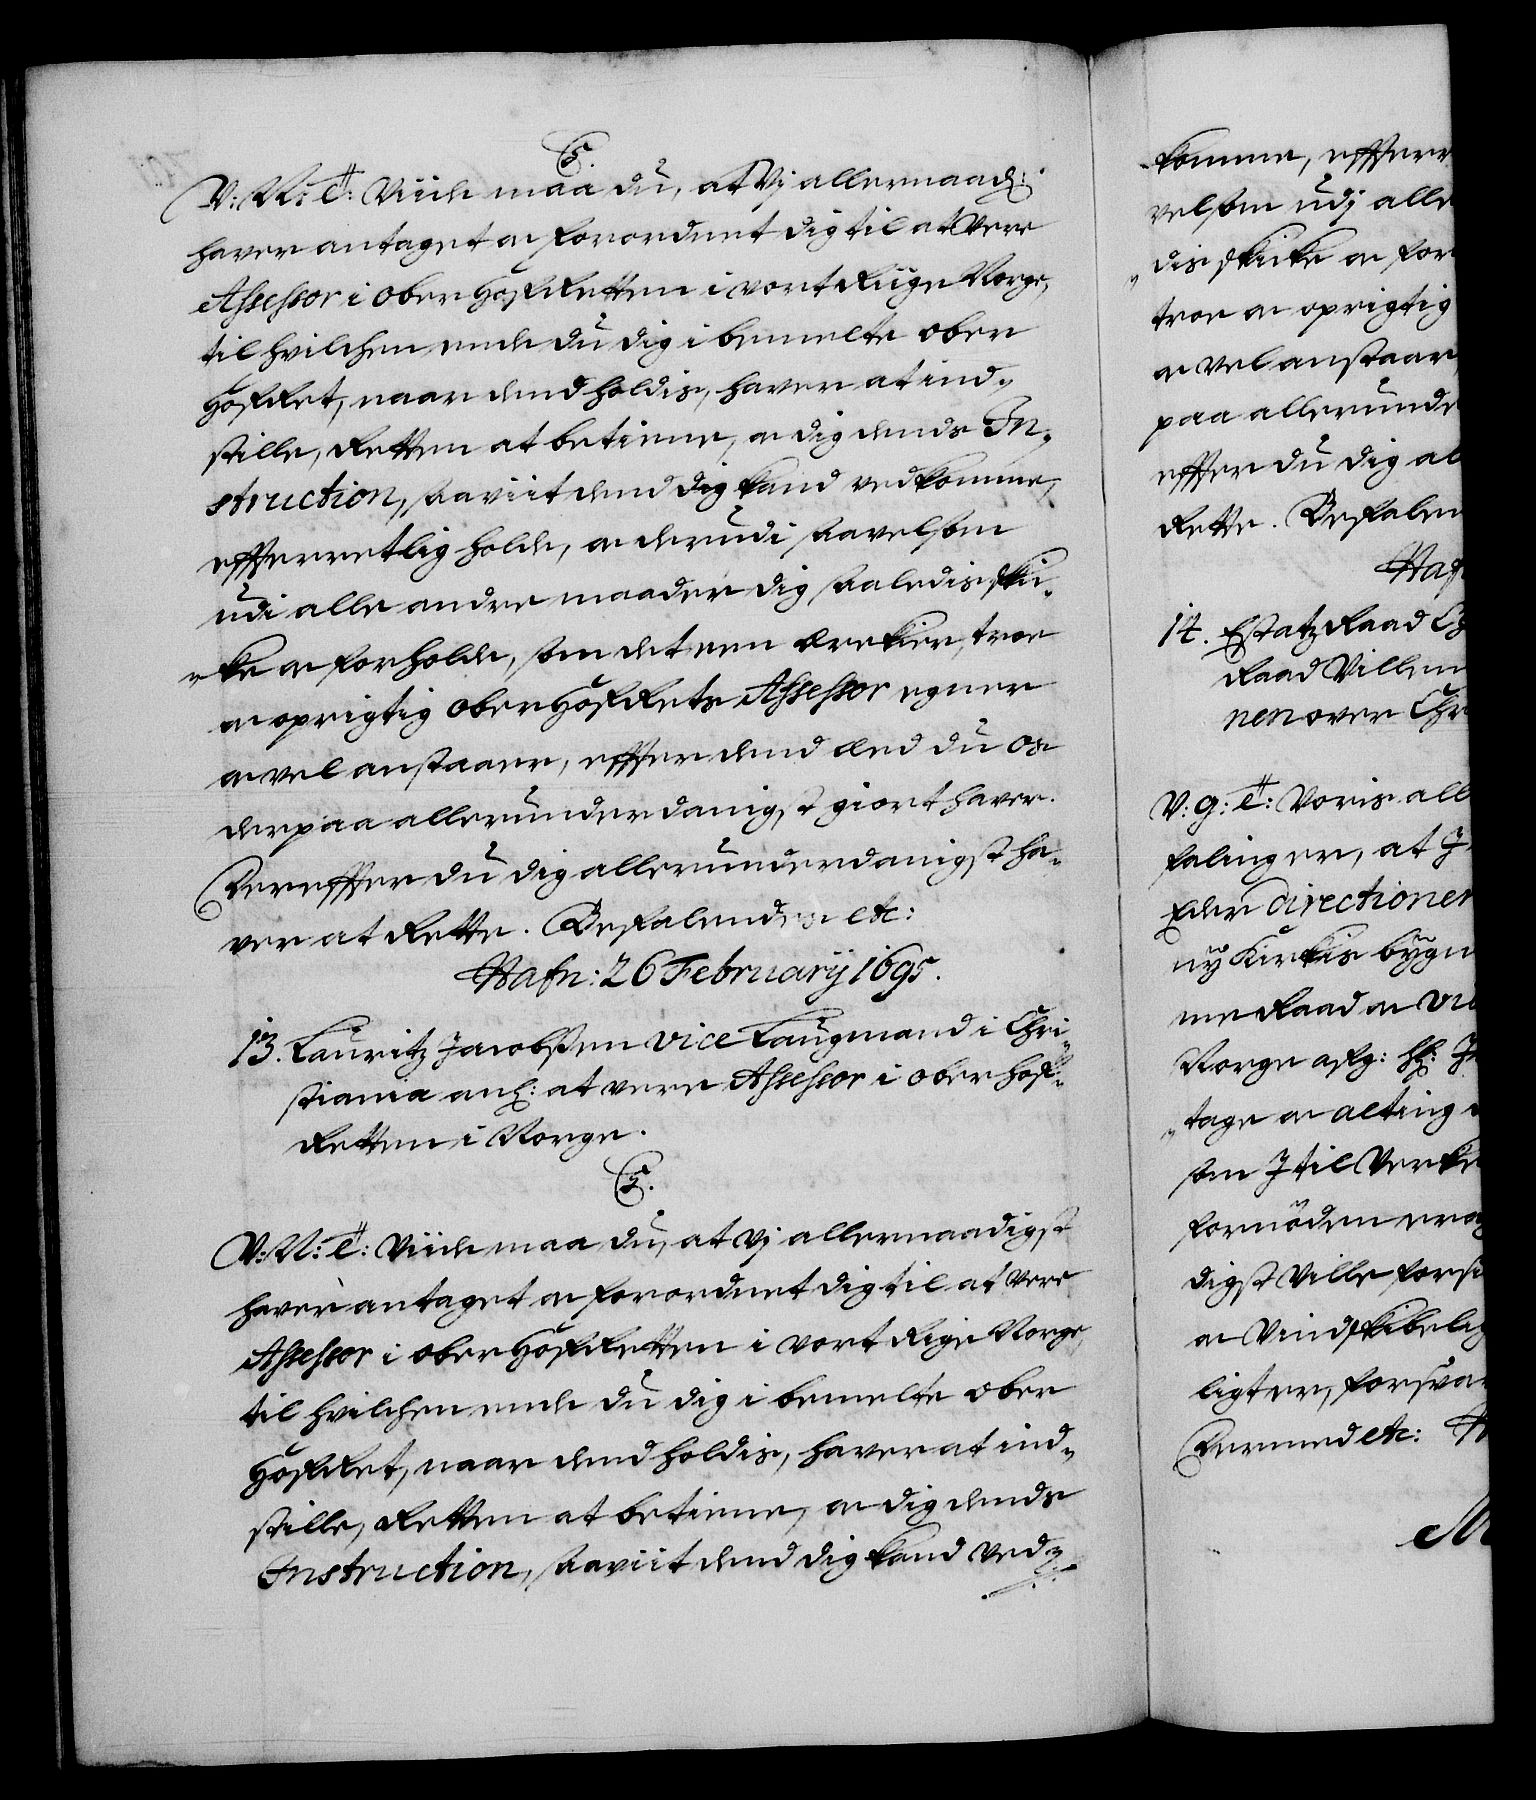 C5.
V: N: C: Viide maa du, at Vj allernaad:
haver antaget oc forordnet dig til at Vere
Assessor i Ober Hof Retten i vort Riige Norge,
til hvilchen ende du dig i bemelte Ober
HofRet, naar dend holdis, haver at ind-
stille, Retten at betienne, oc dig dends In-
struction, saaviit dend dig kand vedkomme,
effterretlig holde, oc derudi saavelsom
udi alle andre maader dig saaledis ski-
cke oc forholde, som det een ærekier, troe
oc oprigtig Ober HofRets Assessor egner
oc vel anstaaer, effter dend Eed du Os
derpaa allerunderdanigst giort haver.
Dereffter du dig allerunderdanigst ha-
ver at Rette. Befalendes etc:
Hafn: 26 Februarij 1695.
13. Lauritz Jacobsen vice Laugmand i Chri-
stiania anl: at vere Assessor i Ober Hof-
Retten i Norge.
C5.
V: N: C: Viide maa du, at Vj allernaadigst
haver antaget oc forordnet dig til at Vere
Assessor i Ober Hof Retten i vort Rige Norge,
til hvilchen ende du dig i bemelte Ober
HofRet, naar dend holdis, haver at ind-
stille, Retten at betienne, oc dig dends
Instruction, saaviit dend dig kand Ved-
komme, effterr
velsom udj alle
dis skicke oc for
troe oc oprigtig
oc vel anstaar
paa allerunde
effter du dig al
Rette. Befalen
Haf
14. Etatz Raad Ch
Raad Villem
nen over Chr
V: G: T: Voris all
faling er, at J
Eder directionen
ny Kirkis bygn
me Raad oc Vi
Norge afg: Hl: J
tage oc alting
som J til Verke
fornøden era
digst Ville forsi
oc Vindskibelig
ligt er, forsvar
Dermed etc: H
M